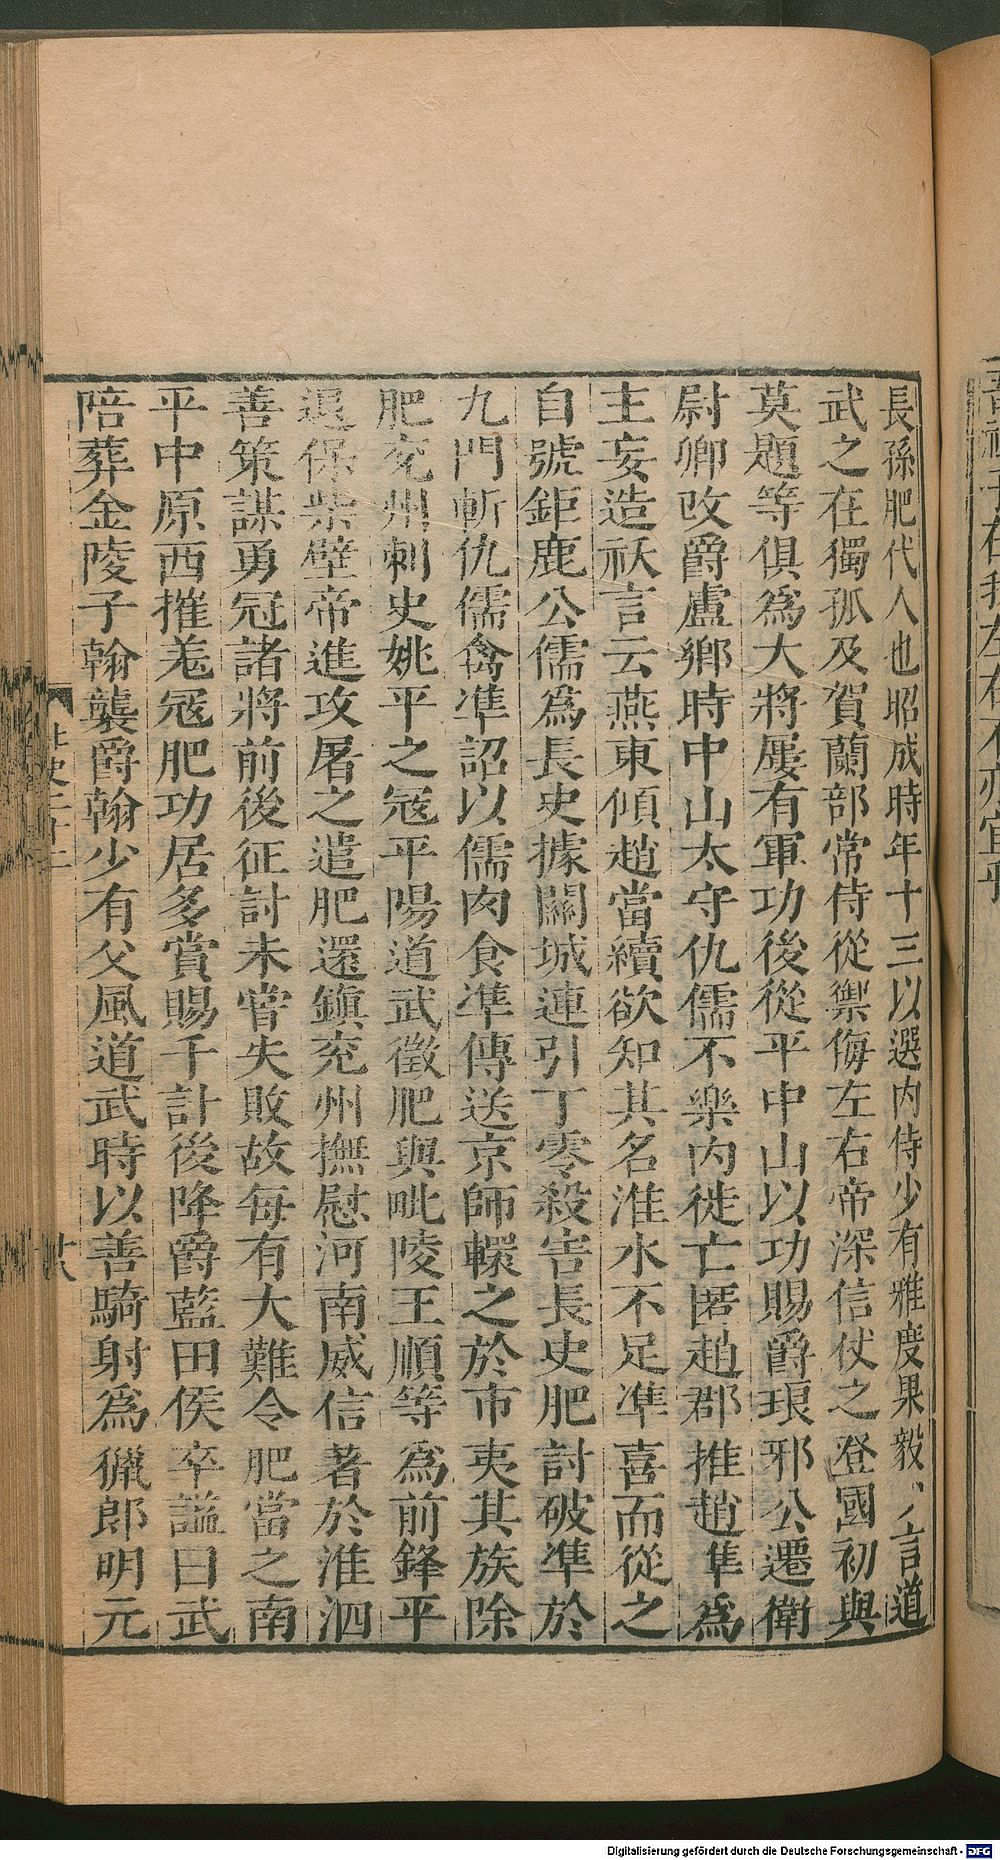 長孫肥代人也昭成時年十三以選內侍少有雅度果毅少言道
武之在獨孤及賀蘭部常侍從禦侮左右帝深信仗之登國初與
莫題等俱爲大將屢有軍功後從平中山以功賜爵琅邪公遷衛
尉卿改爵盧鄉時中山太守仇儒不樂內徙亡匿趙郡推趙準爲
主妄造祅言云燕東傾趙當續欲知其名淮水不足準喜而從之
自號鉅鹿公儒爲長史據關城連引丁零殺害長史肥討破準於
九門斬仇儒禽準詔以儒肉食準傳送京師轘之於市夷其族除
肥兖州刺史姚平之寇平陽道武徵肥與毗陵王順等爲前鋒平
退保柴壁帝進攻屠之遣肥還鎮兖州撫慰河南威信著於淮泗
善策謀勇冠諸將前後征討未嘗失敗故每有大難令肥當之南
平中原西摧羗寇肥功居多賞賜千計後降爵藍田侯卒謚曰武
陪葬金陵子翰襲爵翰少有父風道武時以善騎射爲獵郎明元
Digitalisierung gefördert durch die Deutsche Forschungsgemeinschaft - DFG